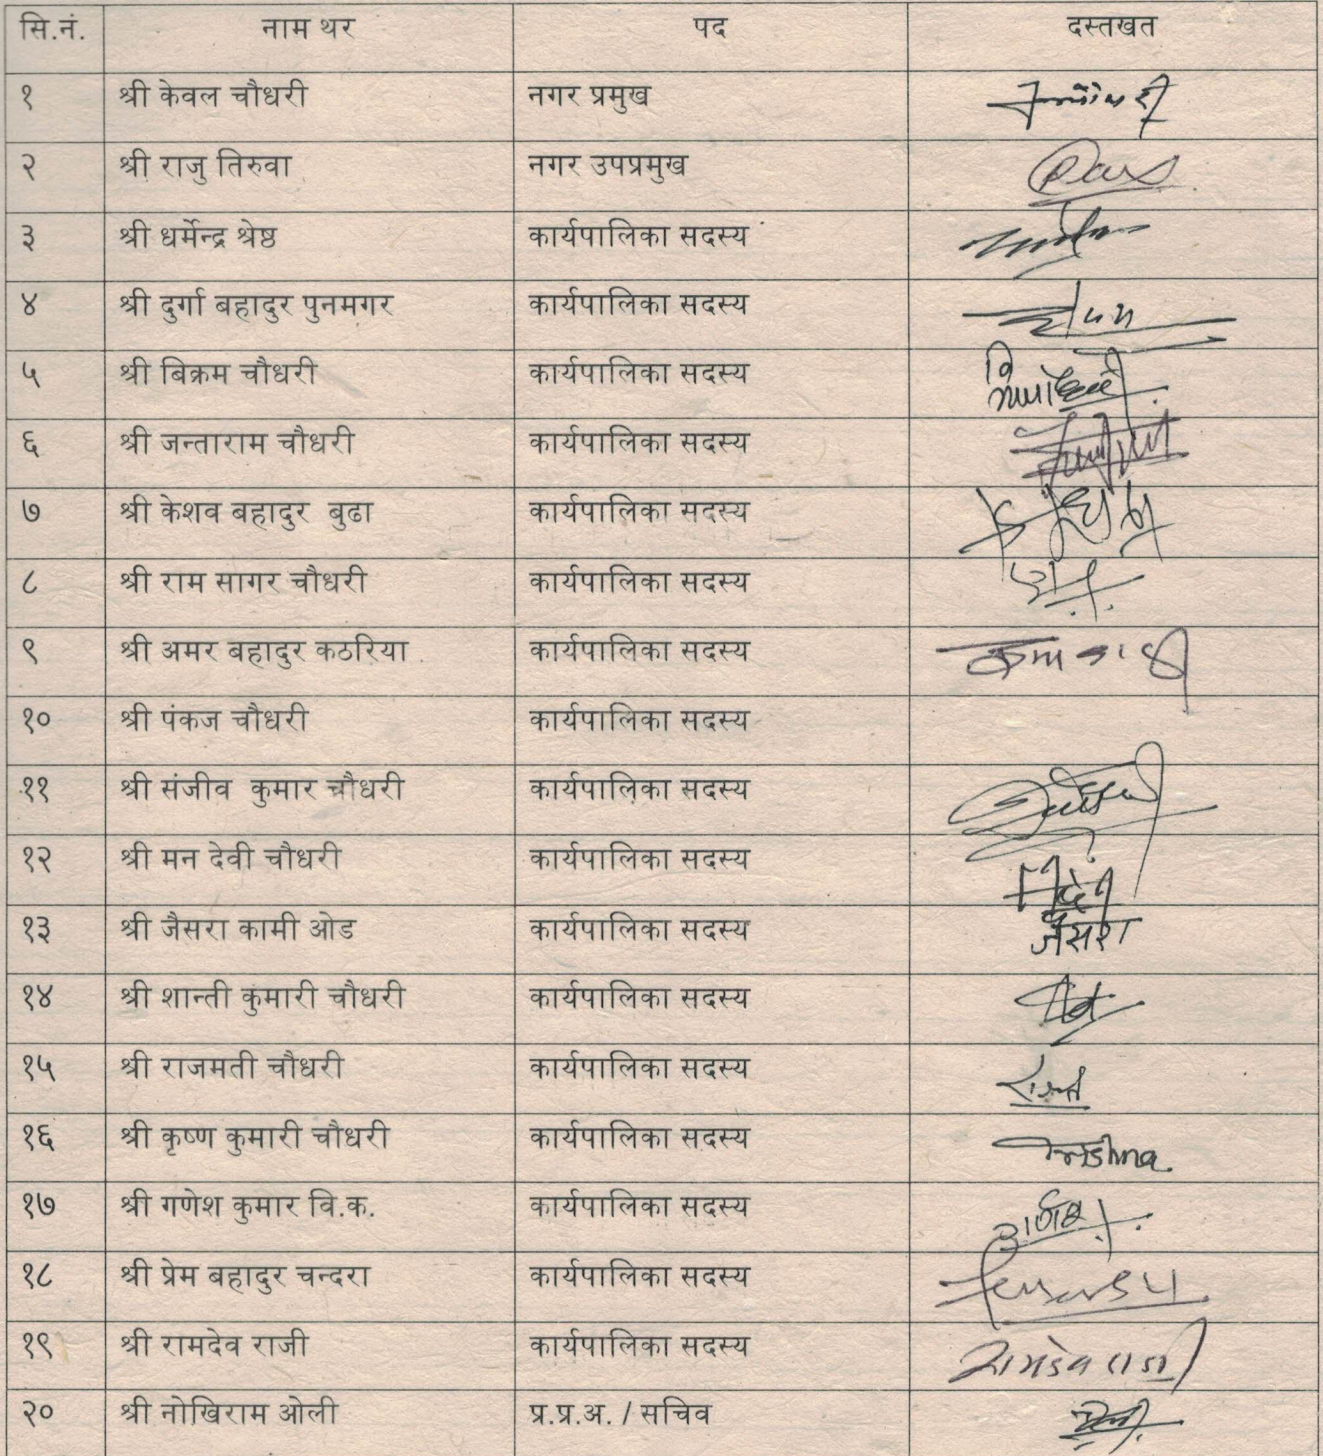 सि.नं. नाम थर पद दस्तखत
१ श्री केवल चौधरी नगर प्रमुख
२ श्री राजु तिरुवा नगर उपप्रमुख
३ श्री धर्मेन्द्र श्रेष्ठ कार्यपालिका सदस्य
४ श्री दुर्गा बहादुर पुनमगर कार्यपालिका सदस्य
५ श्री बिक्रम चौधरी कार्यपालिका सदस्य
६ श्री जन्ताराम चौधरी कार्यपालिका सदस्य
७ श्री केशव बहादुर बुढा कार्यपालिका सदस्य
८ श्री राम सागर चौधरी कार्यपालिका सदस्य
९ श्री अमर बहादुर कठरिया कार्यपालिका सदस्य
१० श्री पंकज चौधरी कार्यपालिका सदस्य
११ श्री संजीव कुमार चौधरी कार्यपालिका सदस्य
१२ श्री मन देवी चौधरी कार्यपालिका सदस्य
१३ श्री जैसरा कामी ओड कार्यपालिका सदस्य जैसरा
१४ श्री शान्ती कुमारी चौधरी कार्यपालिका सदस्य
१५ श्री राजमती चौधरी कार्यपालिका सदस्य
१६ श्री कृष्ण कुमारी चौधरी कार्यपालिका सदस्य Krishna
१७ श्री गणेश कुमार वि.क. कार्यपालिका सदस्य
१८ श्री प्रेम बहादुर चन्दरा कार्यपालिका सदस्य
१९ श्री रामदेव राजी कार्यपालिका सदस्य
२० श्री नोखिराम ओली प्र.प्र.अ. / सचिव